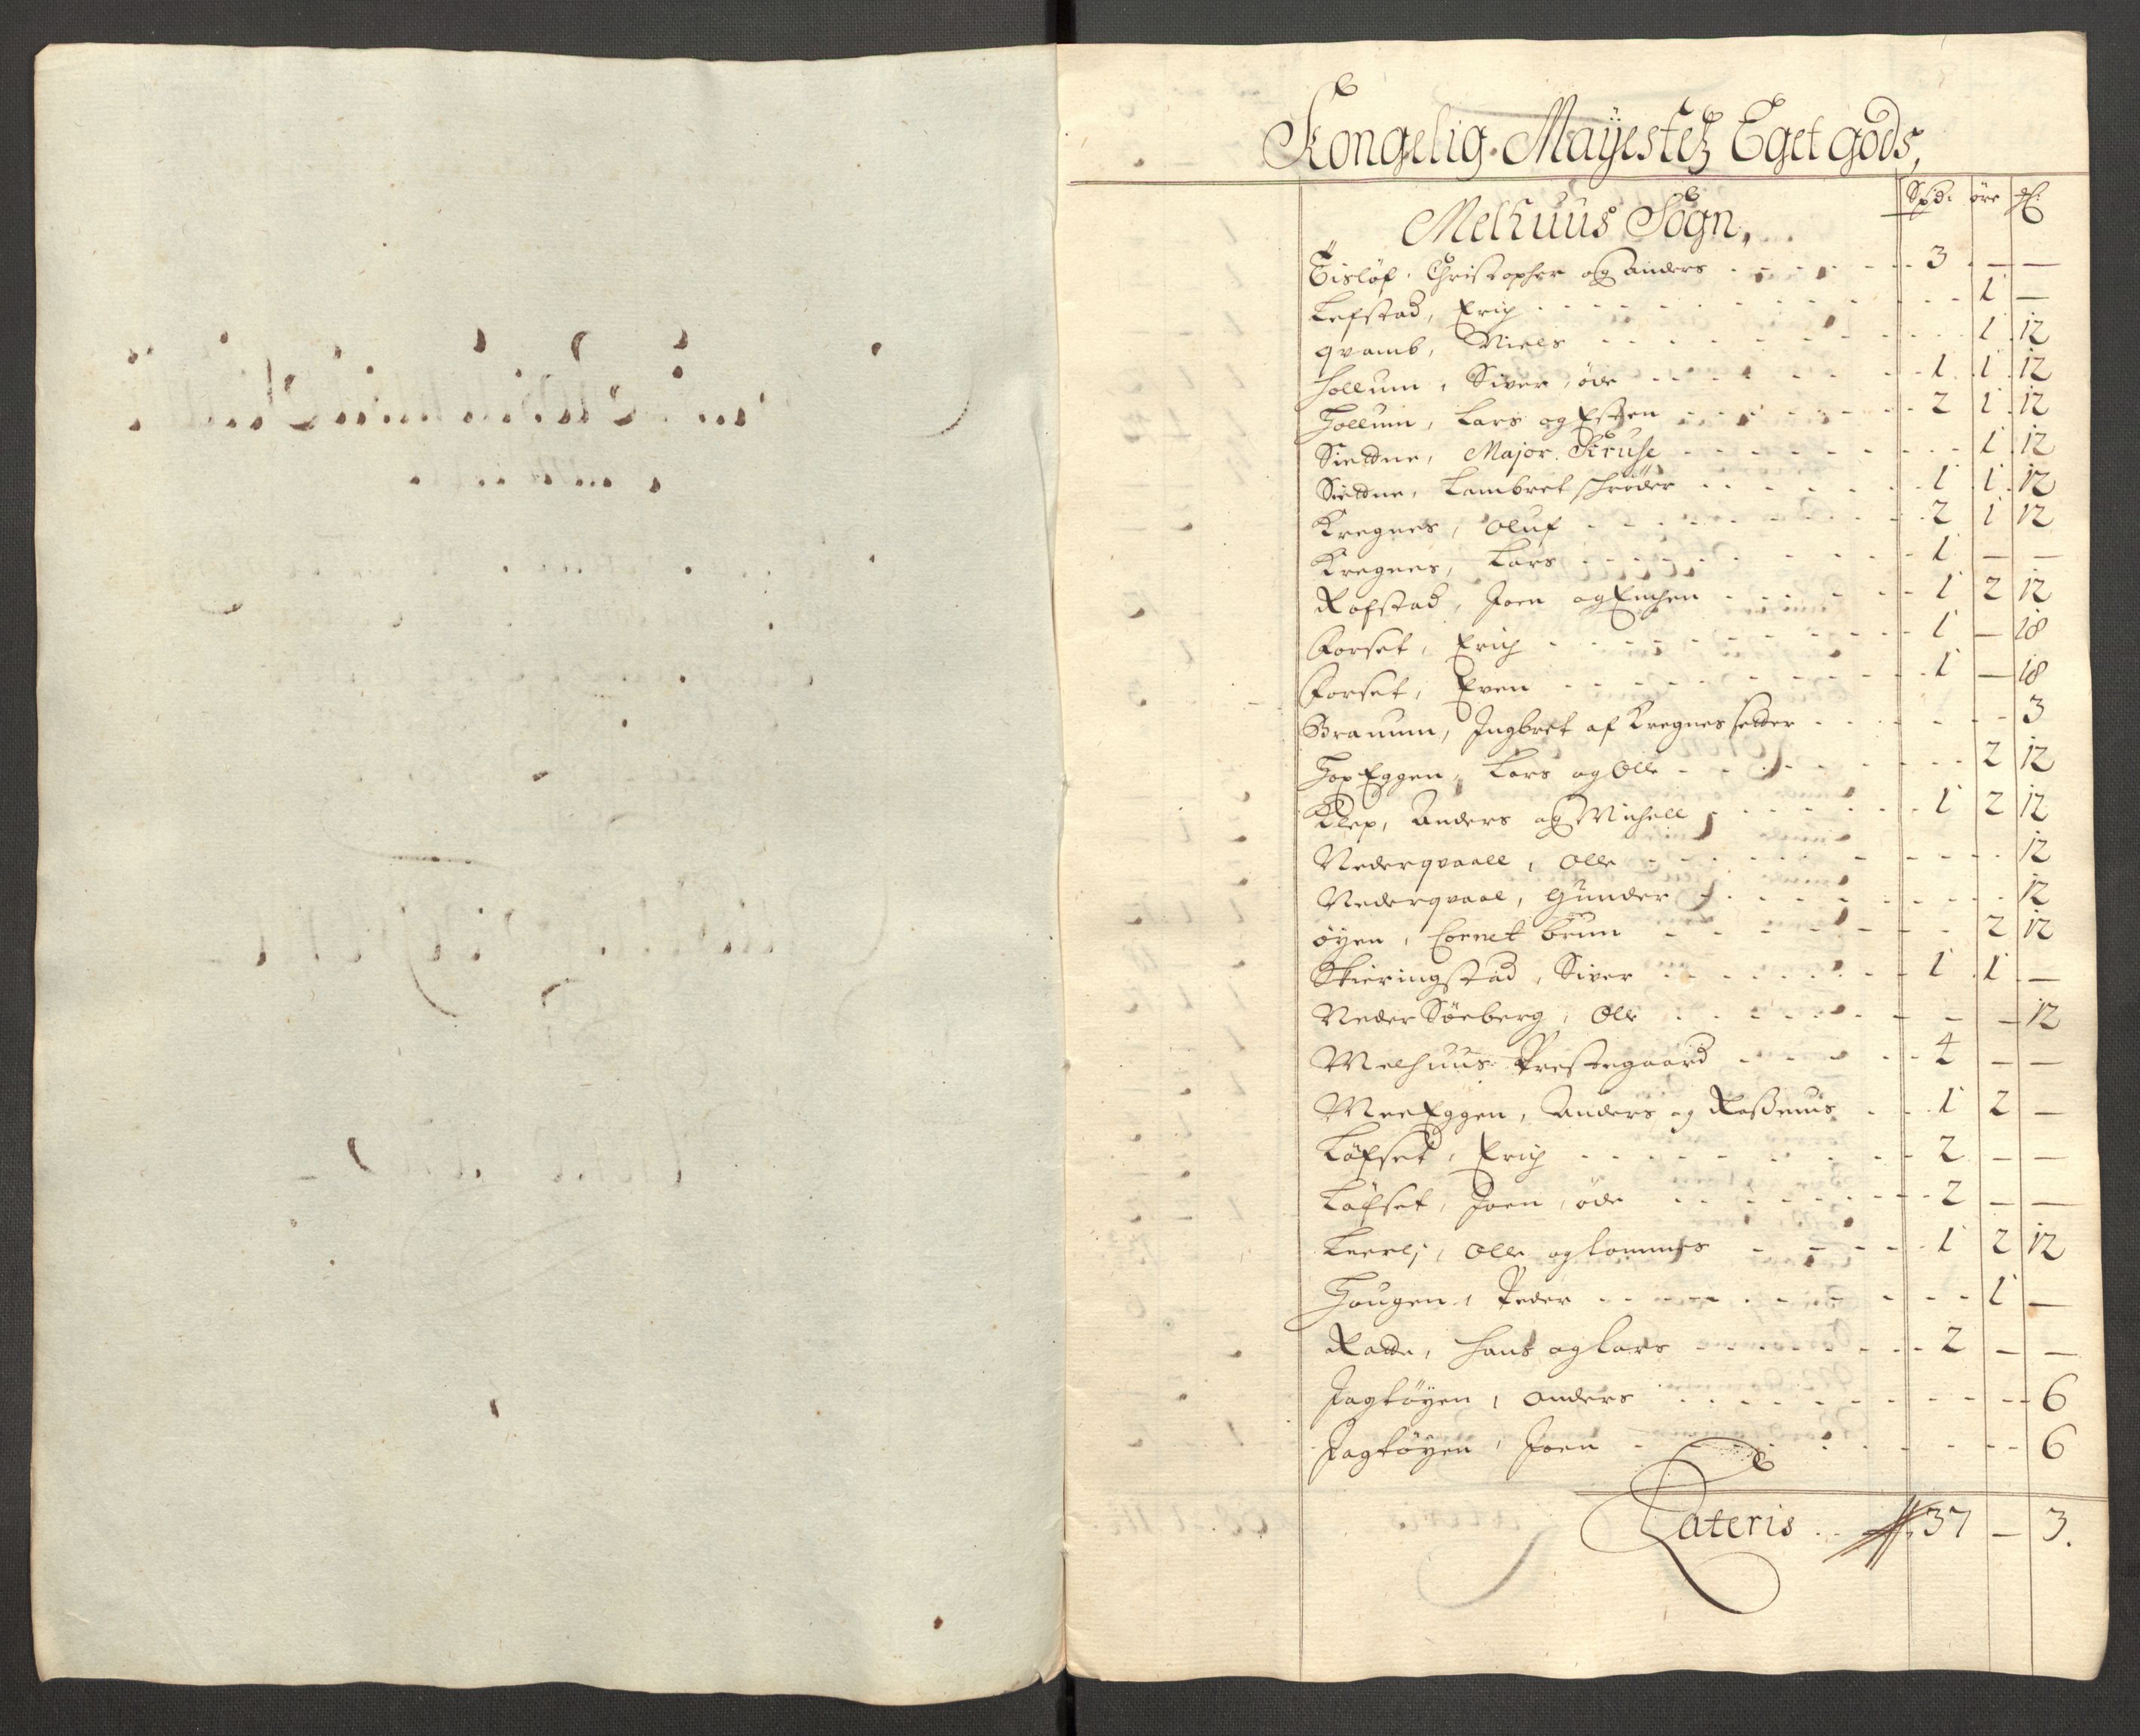 Kongelig Mayestetz Eget gods,
Spd. öre
Melhuus Sogn,
Eislöf, Christopher og anders 3 — —
Lefstad, Erich 1 —
qvamb, Niels 1 12
Hollum, Siver, öde 1 1 12
Hollum, Lars og Esten 2 1 12
Sieldne, Major Kruse 1 12
Sieldne, Lambret schröder 1 1 12
Kregnes, Oluf 2 1 12
Kregnes, Lars 1 — —
Rofstad, Joen og Enchen 1 2 12
Forset, Erich 1 — 18
Forset, Even 1 — 18
Brauum, Ingbret af Kregnes setter 3
Hop Eggen, Lars og Olle 2 12
Klep, Anders og Michell 1 2 12
Nederqvaall, Olle 12
Nederqvaal, Gunder 12
öyen, Cornet brun 2 12
Skieringstad, Siver 1 1 —
Neder Söeberg, Olle — 12
Melhuus Prestegaard 4 — —
Mee Eggen, Anders og Rasmus 1 2 —
Löfset, Erich 2 — —
Löfset, Joen, öde 2 — —
Leerli, Olle og tommes 1 2 12
Hougen, Peder 1 —
Radde, Hans og Lars 2 — —
Jagtöyen, Anders 6
Jagtöyen, Joen 6
Lateris 37 — 3.